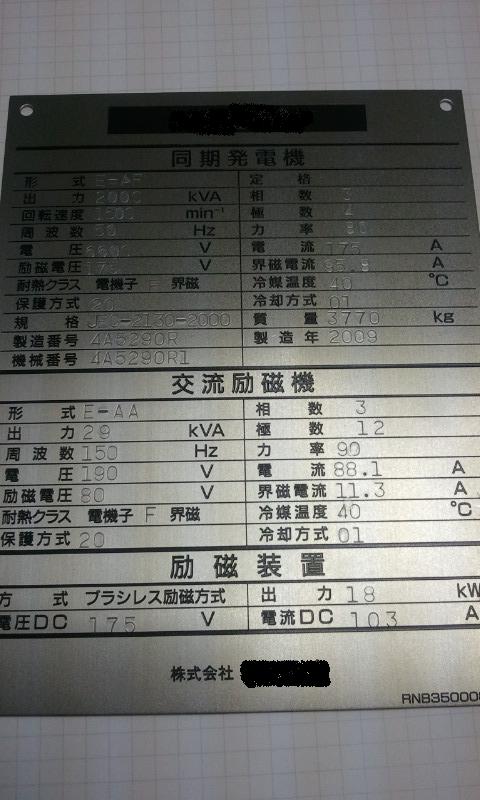 同期発電機
形 式 E-AF 定 格
出 力 2000 kVA 相 数 3
回転速度 1500 min⁻¹ 極 数 4
周 波 数 50 Hz 力 率 80
電 圧 6600 V 電 流 175 A
励磁電圧 V 界磁電流 A
耐熱クラス 電機子 F 界磁 冷媒温度 40 ℃
保護方式 20 冷却方式 01
規 格 JEC-2130-2000 質 量 3770 kg
製造番号 4A5290R 製造年 2009
機械番号 4A5290R1
交流励磁機
形 式 E-AA 相 数 3
出 力 29 kVA 極 数 12
周 波 数 150 Hz 力 率 90
電 圧 190 V 電 流 88.1 A
励磁電圧 80 V 界磁電流 11.3 A
耐熱クラス 電機子 F 界磁 冷媒温度 40 ℃
保護方式 20 冷却方式 01
励磁装置
方 式 ブラシレス励磁方式 出 力 18 kW
電圧DC 175 V 電流DC 103 A
株式会社